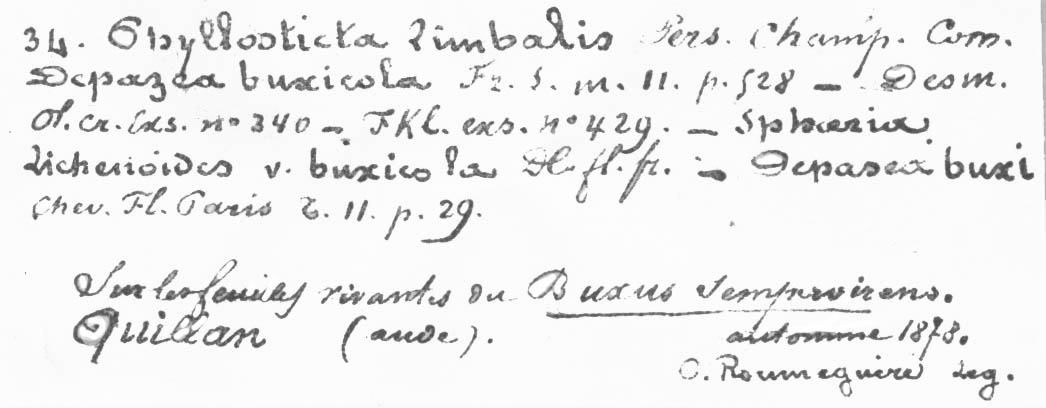 34. Phyllosticta limbalis Pers. Champ. Com.
Depazea buxicola Fr. S. m. 11. p. 528 — Desm.
Pl. cr. Exs. n° 340 — FKl. exs. n° 429. — Sphaeria
lichenoides v. buxicola DC. fl. fr. — Depasea buxi
Chev. Fl. Paris t. 11. p. 29.
Sur les feuilles vivantes du Buxus sempervirens.
Quillan (aude).
automne 1878.
C. Roumeguère leg.